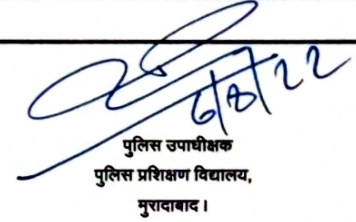 6/8/22
पुलिस उपाधीक्षक
पुलिस प्रशिक्षण विद्यालय,
मुरादाबाद।